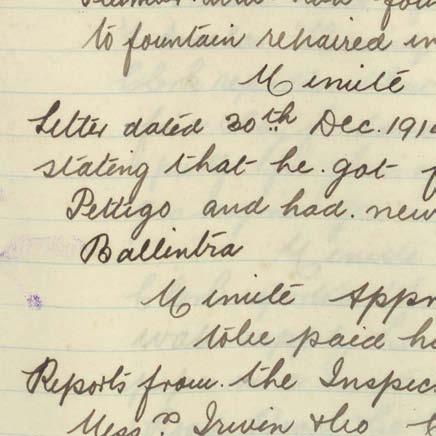 and had
to fountain repaired in
Minute
Letter dated 30th Dec. 191
stating that he. got
Pettigo and had. new
Ballintra
Minute Appr
tobe paid h
Reports from. the Inspec
Messrs Irwin & Co